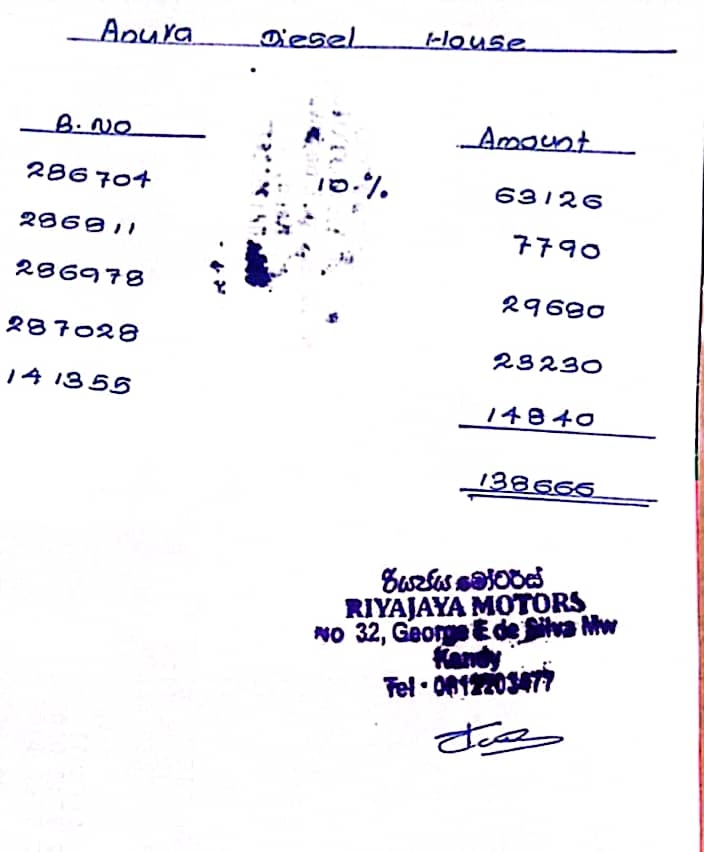 Anura Diesel House
B. NO Amount
286704 10.% 63126
286811 7790
286978 29680
287028 23230
141355 14840
138666
රියජය මෝටර්ස්
RIYAJAYA MOTORS
No 32, George E de Silva Mw
Kandy
Tel · 0812203477